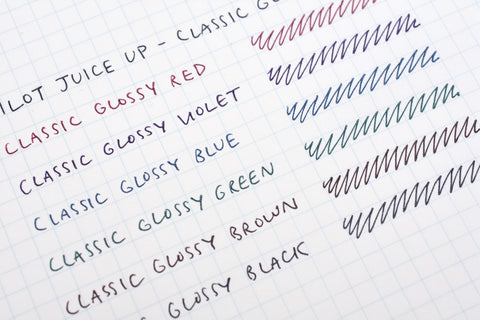 ILOT JUICE UP - CLASSIC GLO
CLASSIC GLOSSY RED
CLASSIC GLOSSY VIOLET
CLASSIC GLOSSY BLUE
CLASSIC GLOSSY GREEN
CLASSIC GLOSSY BROWN
GLOSSY BLACK